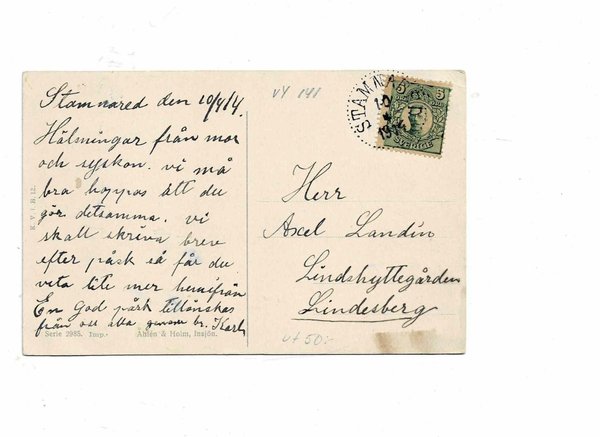 Stamnared den 10/4/14.
Hälmingar från mor
och syskon. vi må
bra hoppas att du
gör detsamma. vi
skall skriva brev
efter påsk så får du
veta lite mer hemifrån
En God påsk tillönskas
från oss alla genom br. Karl
Serie 2985. Imp.
Åhlén & Holm, Insjön.
K. V. i B. 12.
vy 141
STAMNAR
10
4
1914
5 5
SVERIGE
Herr
Axel Landin
Lindshyttegården
Lindesberg
ut 50:-